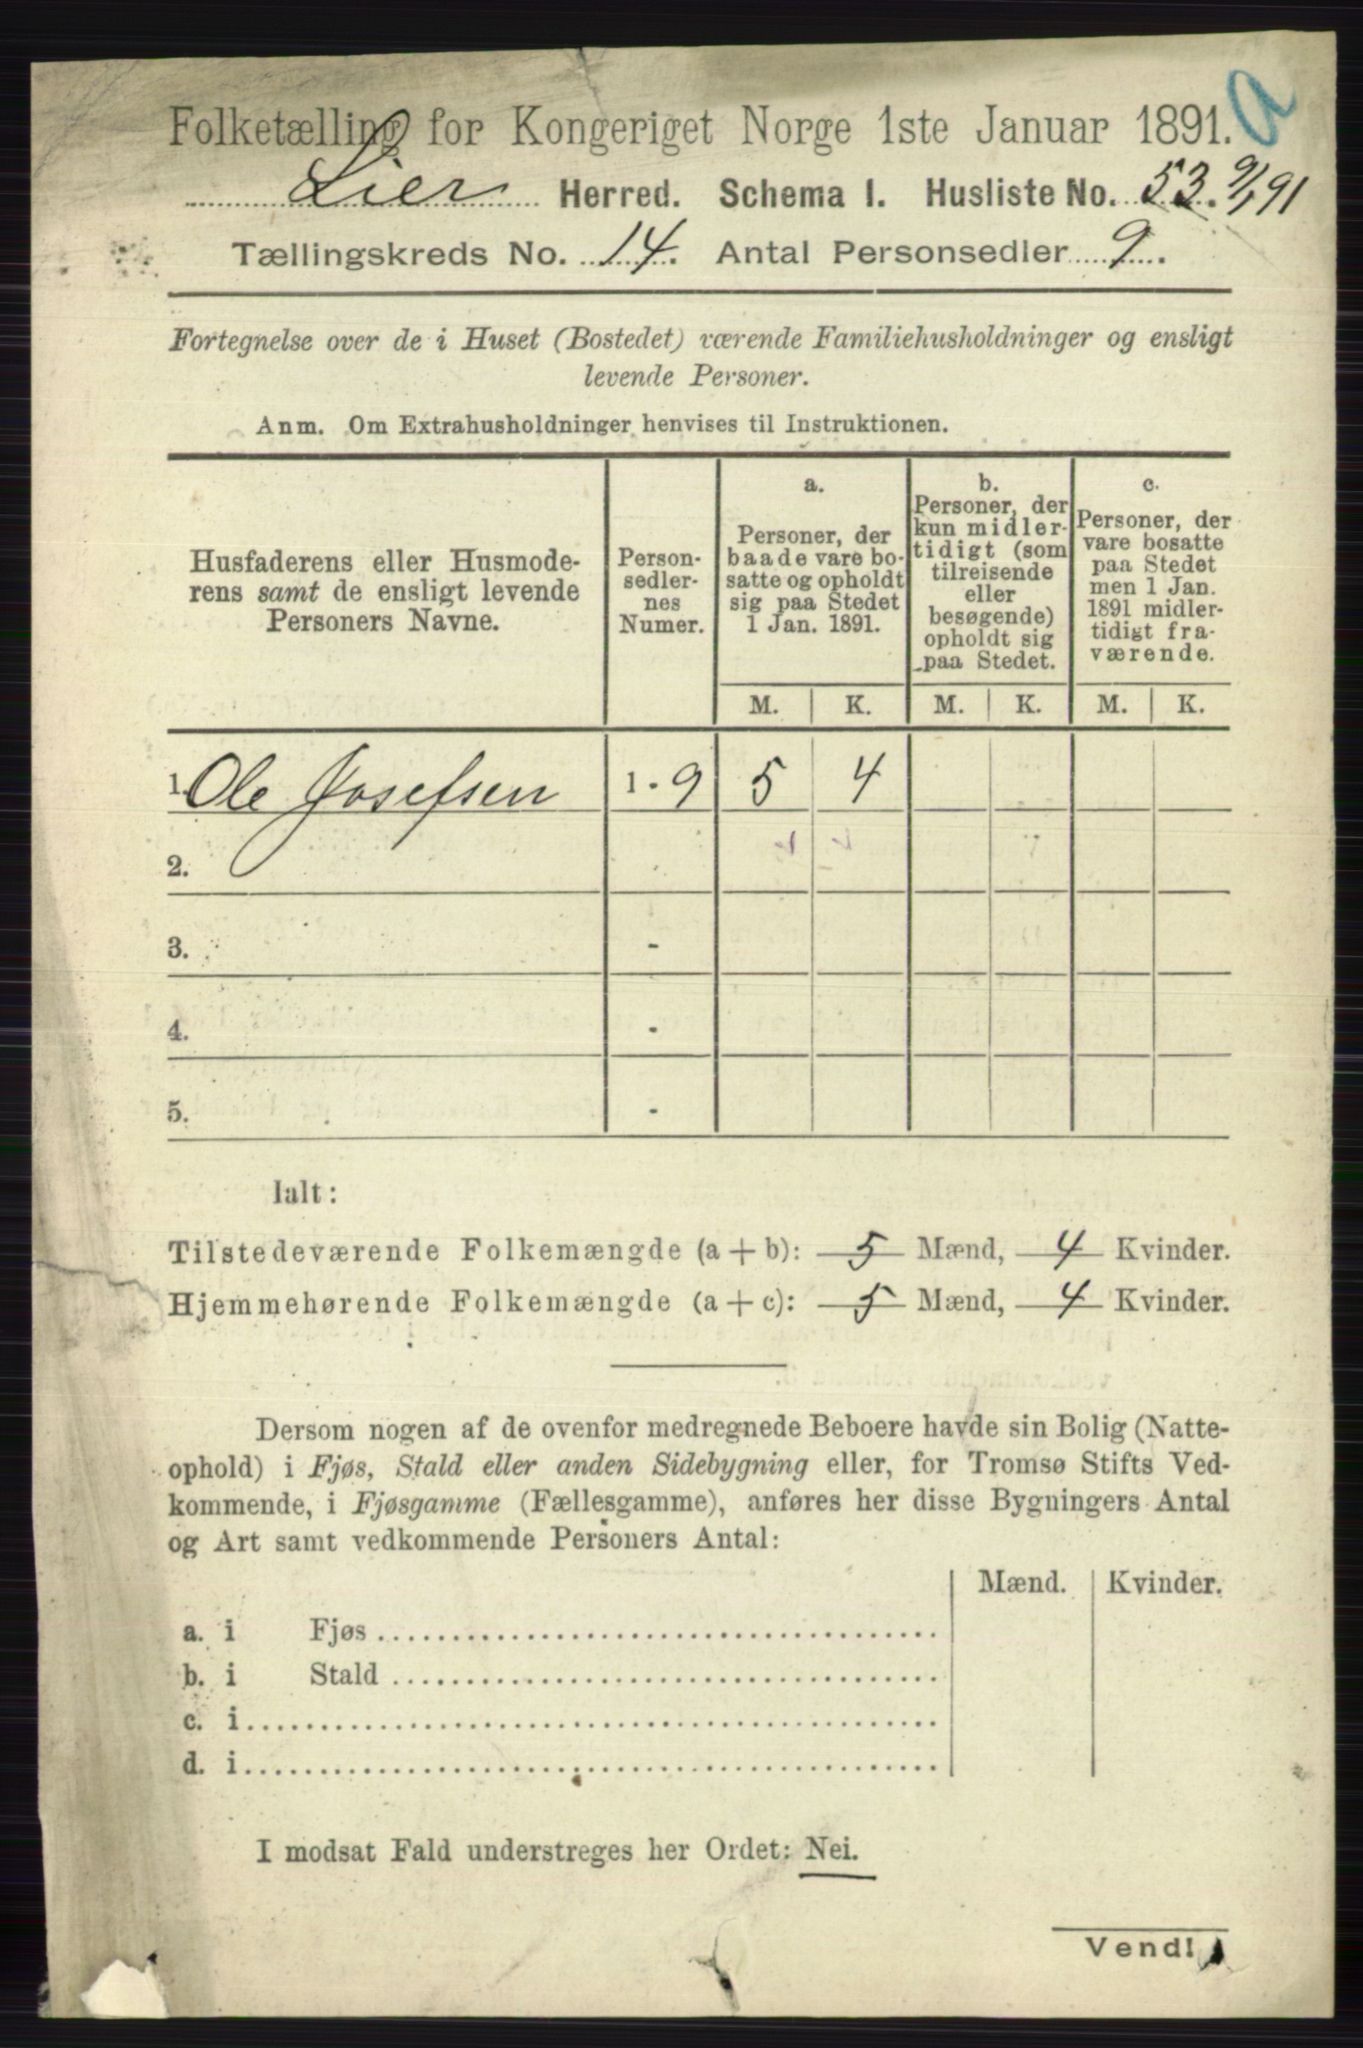 Folketælling for Kongeriget Norge 1ste Januar 1891.
Lier Herred. Schema I. Husliste No. 53. 9/1 91
Tællingskreds No. 14. Antal Personsedler 9.
Fortegnelse over de i Huset (Bostedet) værende Familiehusholdninger og ensligt
levende Personer.
Anm. Om Extrahusholdninger henvises til Instruktionen.
Husfaderens eller Husmode-
rens samt de ensligt levende
Personers Navne.
Person-
sedler-
nes
Numer.
a.
Personer, der
baade vare bo-
satte og opholdt
sig paa Stedet
1 Jan. 1891.
b.
Personer, der
kun midler-
tidigt (som
tilreisende
eller
besøgende)
opholdt sig
paa Stedet.
c.
Personer, der
vare bosatte
paa Stedet
men 1 Jan.
1891 midler-
tidigt fra-
værende.
M. K. M. K. M. K.
1. Ole Josefsen 1 - 9 5 4
2.
3. -
4. -
5. -
Ialt:
Tilstedeværende Folkemængde (a + b): 5 Mænd, 4 Kvinder.
Hjemmehørende Folkemængde (a + c): 5 Mænd, 4 Kvinder.
Dersom nogen af de ovenfor medregnede Beboere havde sin Bolig (Natte-
ophold) i Fjøs, Stald eller anden Sidebygning eller, for Tromsø Stifts Ved-
kommende, i Fjøsgamme (Fællesgamme), anføres her disse Bygningers Antal
og Art samt vedkommende Personers Antal:
Mænd. Kvinder.
a. i Fjøs
b. i Stald
c. i
d. i
I modsat Fald understreges her Ordet: Nei.
Vend!